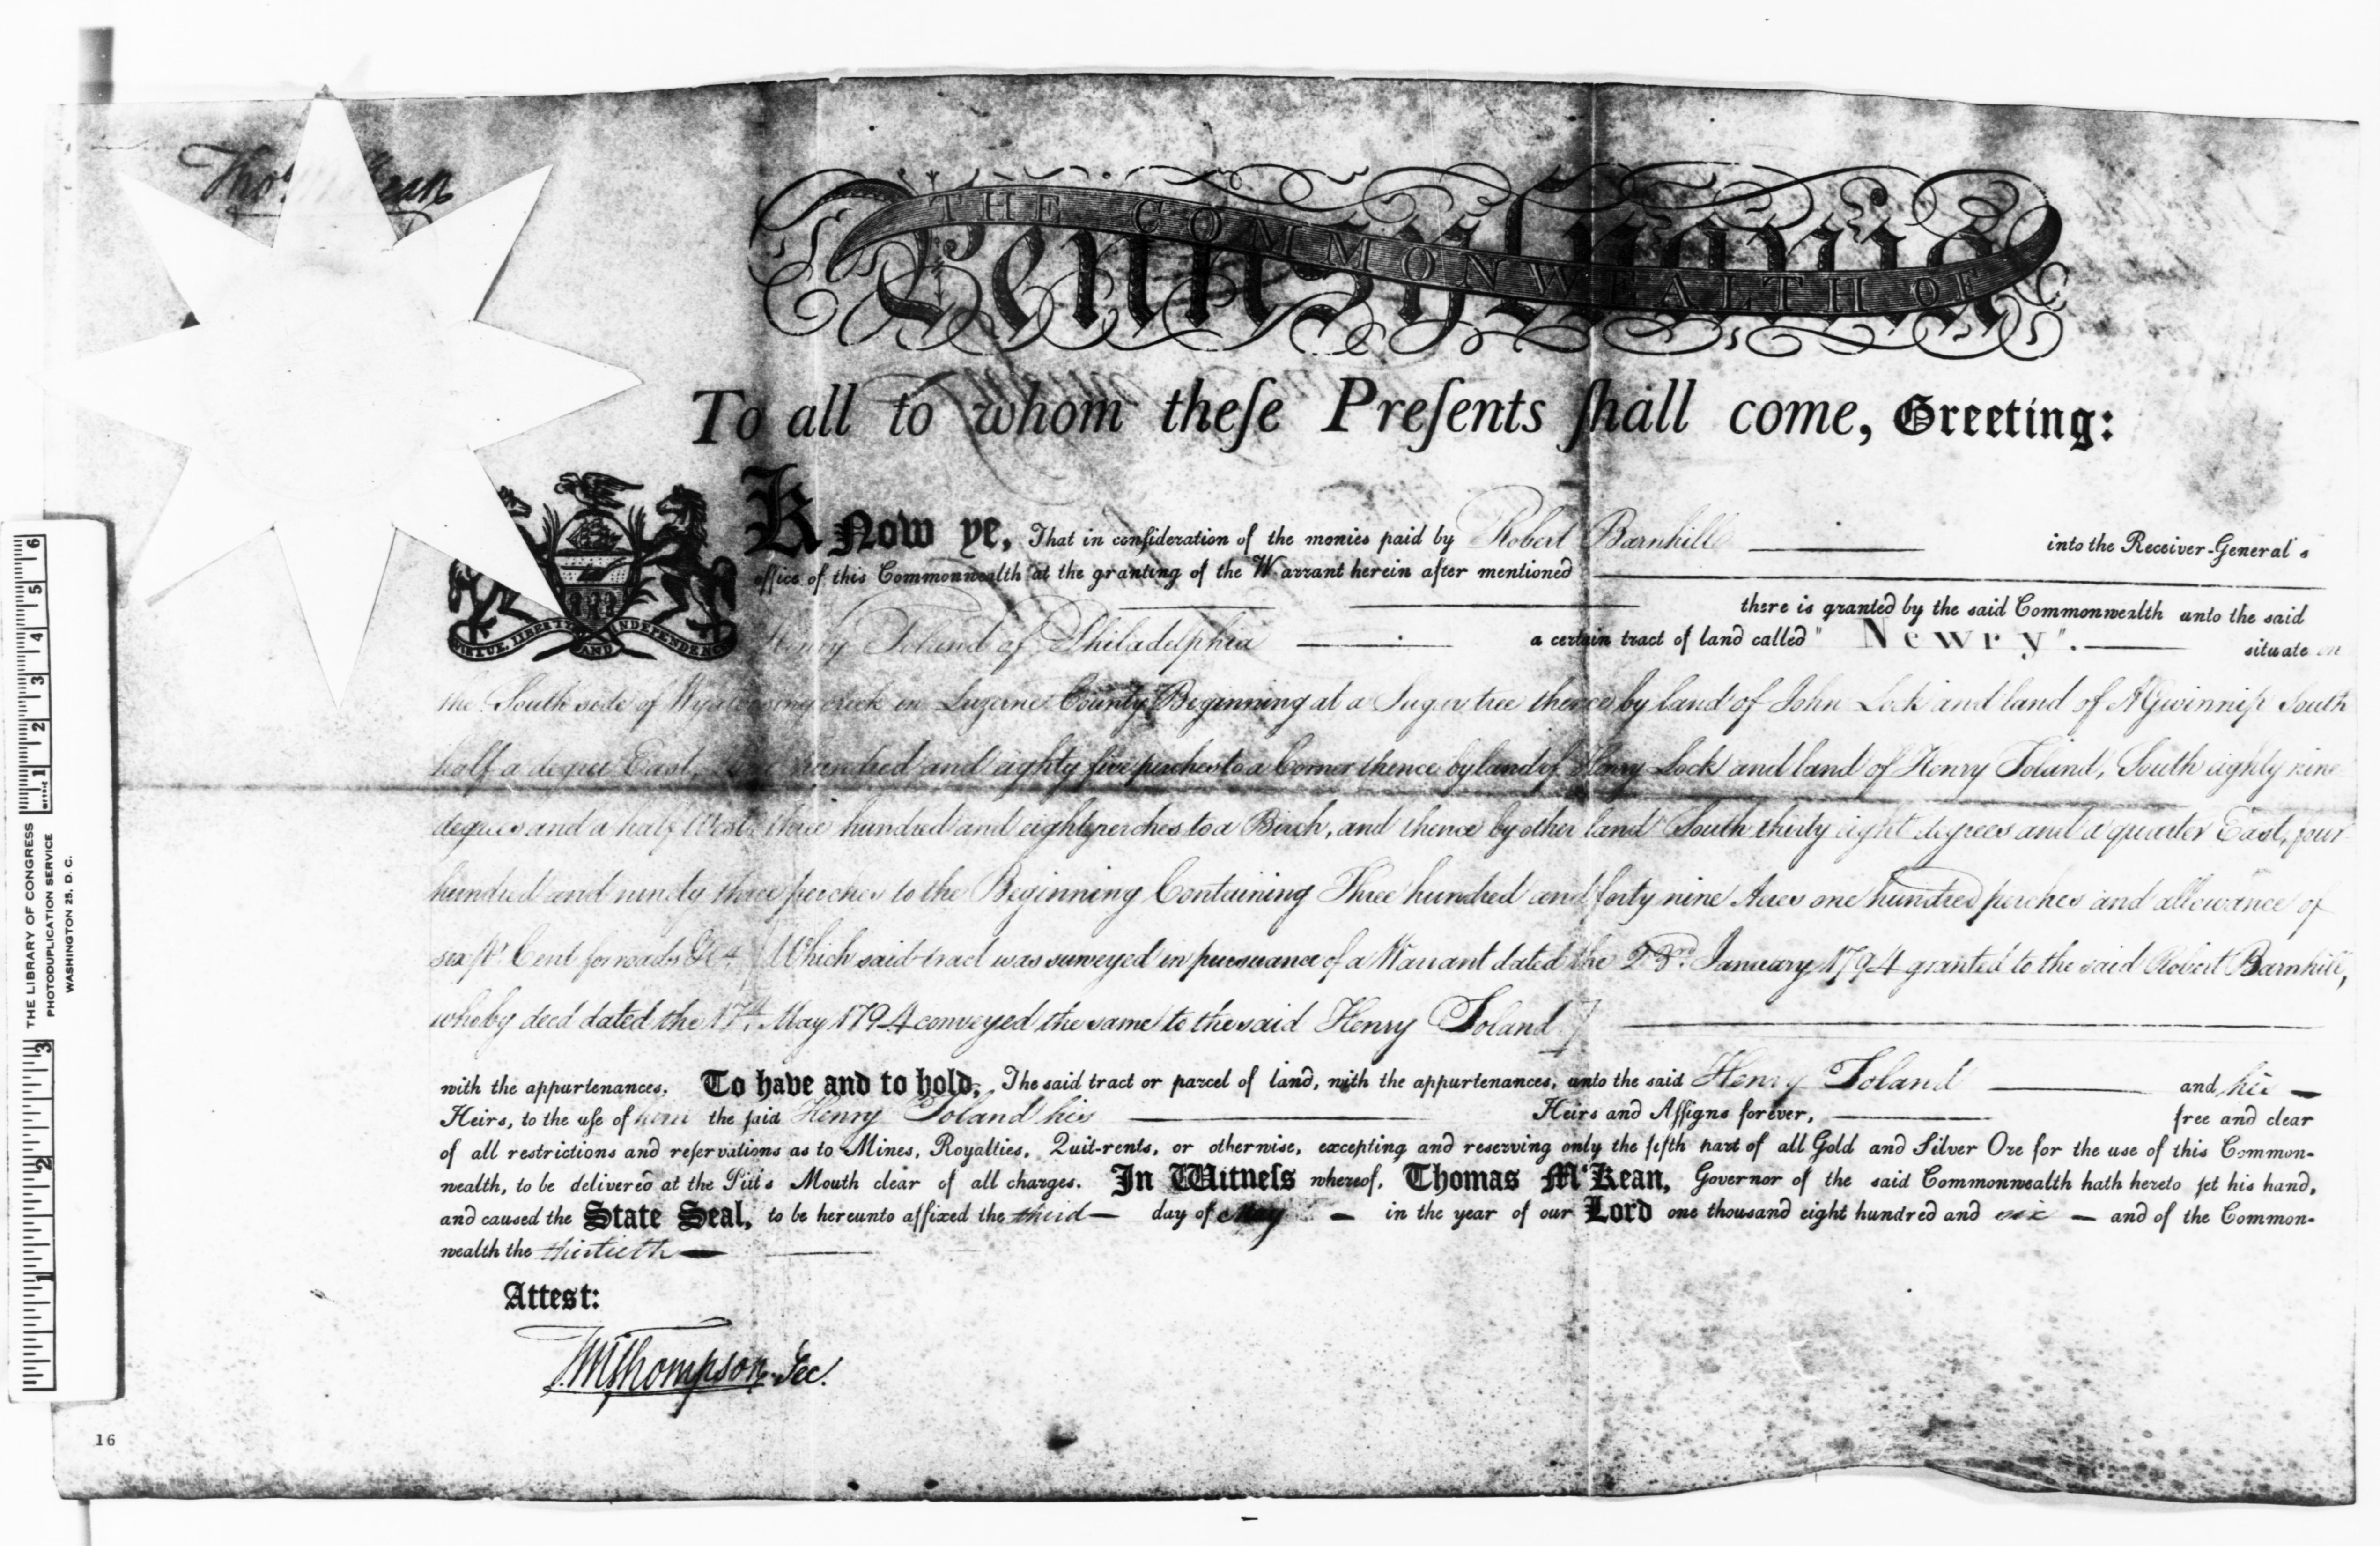 Thos. McKean
THE COMMONWEALTH OF
Pennsylvania
To all to whom theſe Preſents ſhall come, Greeting:
Know ye, That in conſideration of the monies paid by Robert Barnhill into the Receiver-General's
office of this Commonwealth at the granting of the Warrant herein after mentioned
there is granted by the said Commonwealth unto the said
Henry Toland of Philadelphia a certain tract of land called "Newry". situate on
VIRTUE, LIBERTY AND INDEPENDENCE
the South side of Wyalusing creek in Luzerne County Beginning at a Sugar tree thence by land of John Lock and land of A Gwinnip South
half a degree East, hundred and eighty five perches to a Corner thence by land of Henry Lock and land of Henry Toland, South eighty nine
degrees and a half West, three hundred and eight perches to a Birch, and thence by other land South thirty eight degrees and a quarter East, four
hundred and ninety three perches to the Beginning Containing Three hundred and forty nine Acres one hundred perches and allowance of
six Pr. Cent for roads &ca. [Which said tract was surveyed in pursuance of a Warrant dated the January 1794 granted to the said Robert Barnhill,
who by deed dated the 17th. May 1794 conveyed the same to the said Henry Toland]
with the appurtenances. To have and to hold, The said tract or parcel of land, with the appurtenances, unto the said Henry Toland and his
Heirs, to the uſe of him the ſaid Henry Toland his Heirs and Aſſigns forever, free and clear
of all restrictions and reſervations as to Mines, Royalties, Quit-rents, or otherwise, excepting and reserving only the fifth part of all Gold and Silver Ore for the use of this Common-
wealth, to be delivered at the Pit's Mouth clear of all charges. In Witneſs whereof, Thomas M'Kean, Governor of the said Commonwealth hath hereto ſet his hand,
and caused the State Seal, to be hereunto affixed the third day of May in the year of our Lord one thousand eight hundred and six and of the Common-
wealth the thirtieth
Attest:
T.M.Thompson Sec.
THE LIBRARY OF CONGRESS
PHOTODUPLICATION SERVICE
WASHINGTON 25, D. C.
1 2 3 4 5 6
1 2 3
16